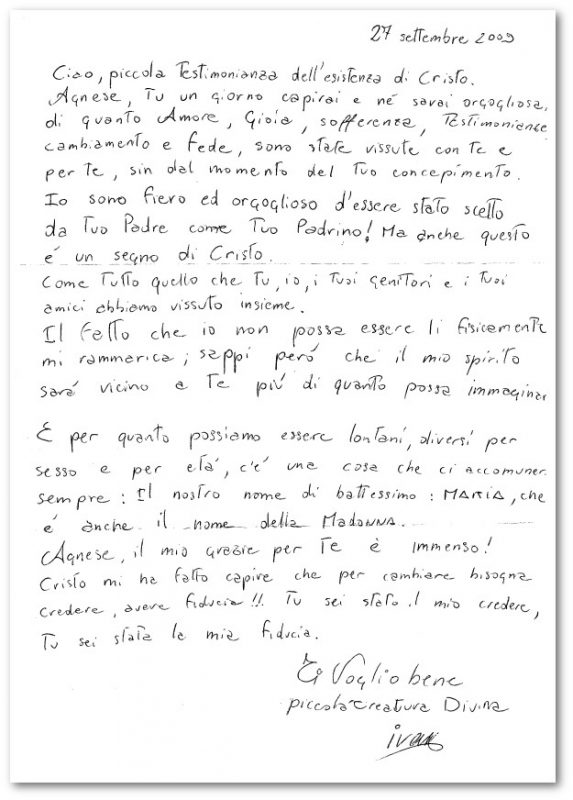 27 settembre 2009
Ciao, piccola Testimonianza dell'esistenza di Cristo.
Agnese, Tu un giorno capirai e né sarai orgogliosa,
di quanto Amore, Gioia, sofferenza, Testimonianze
cambiamento e Fede, sono state vissute con te e
per te, sin dal momento del Tuo concepimento.
Io sono fiero ed orgoglioso d'essere stato scelto
da Tuo Padre come Tuo Padrino! Ma anche questo
é un segno di Cristo.
Come Tutto quello che Tu, io, i Tuoi genitori e i Tuoi
amici abbiamo vissuto insieme.
Il Fatto che io non possa essere li fisicamente
mi rammarica; sappi peró che il mio spirito
sará vicino a Te piú di quanto possa immaginar
E per quanto possiamo essere lontani, diversi per
sesso e per etá, c'é una cosa che ci accomuner
sempre: Il nostro nome di battessimo: MARIA, che
é anche il nome della Madonna.
Agnese, il mio grazie per Te è immenso!
Cristo mi ha fatto capire che per cambiare bisogna
credere, avere fiducia!!. Tu sei stato il mio credere,
Tu sei stata la mia fiducia.
Ti Voglio bene
piccola creatura Divina
ivan